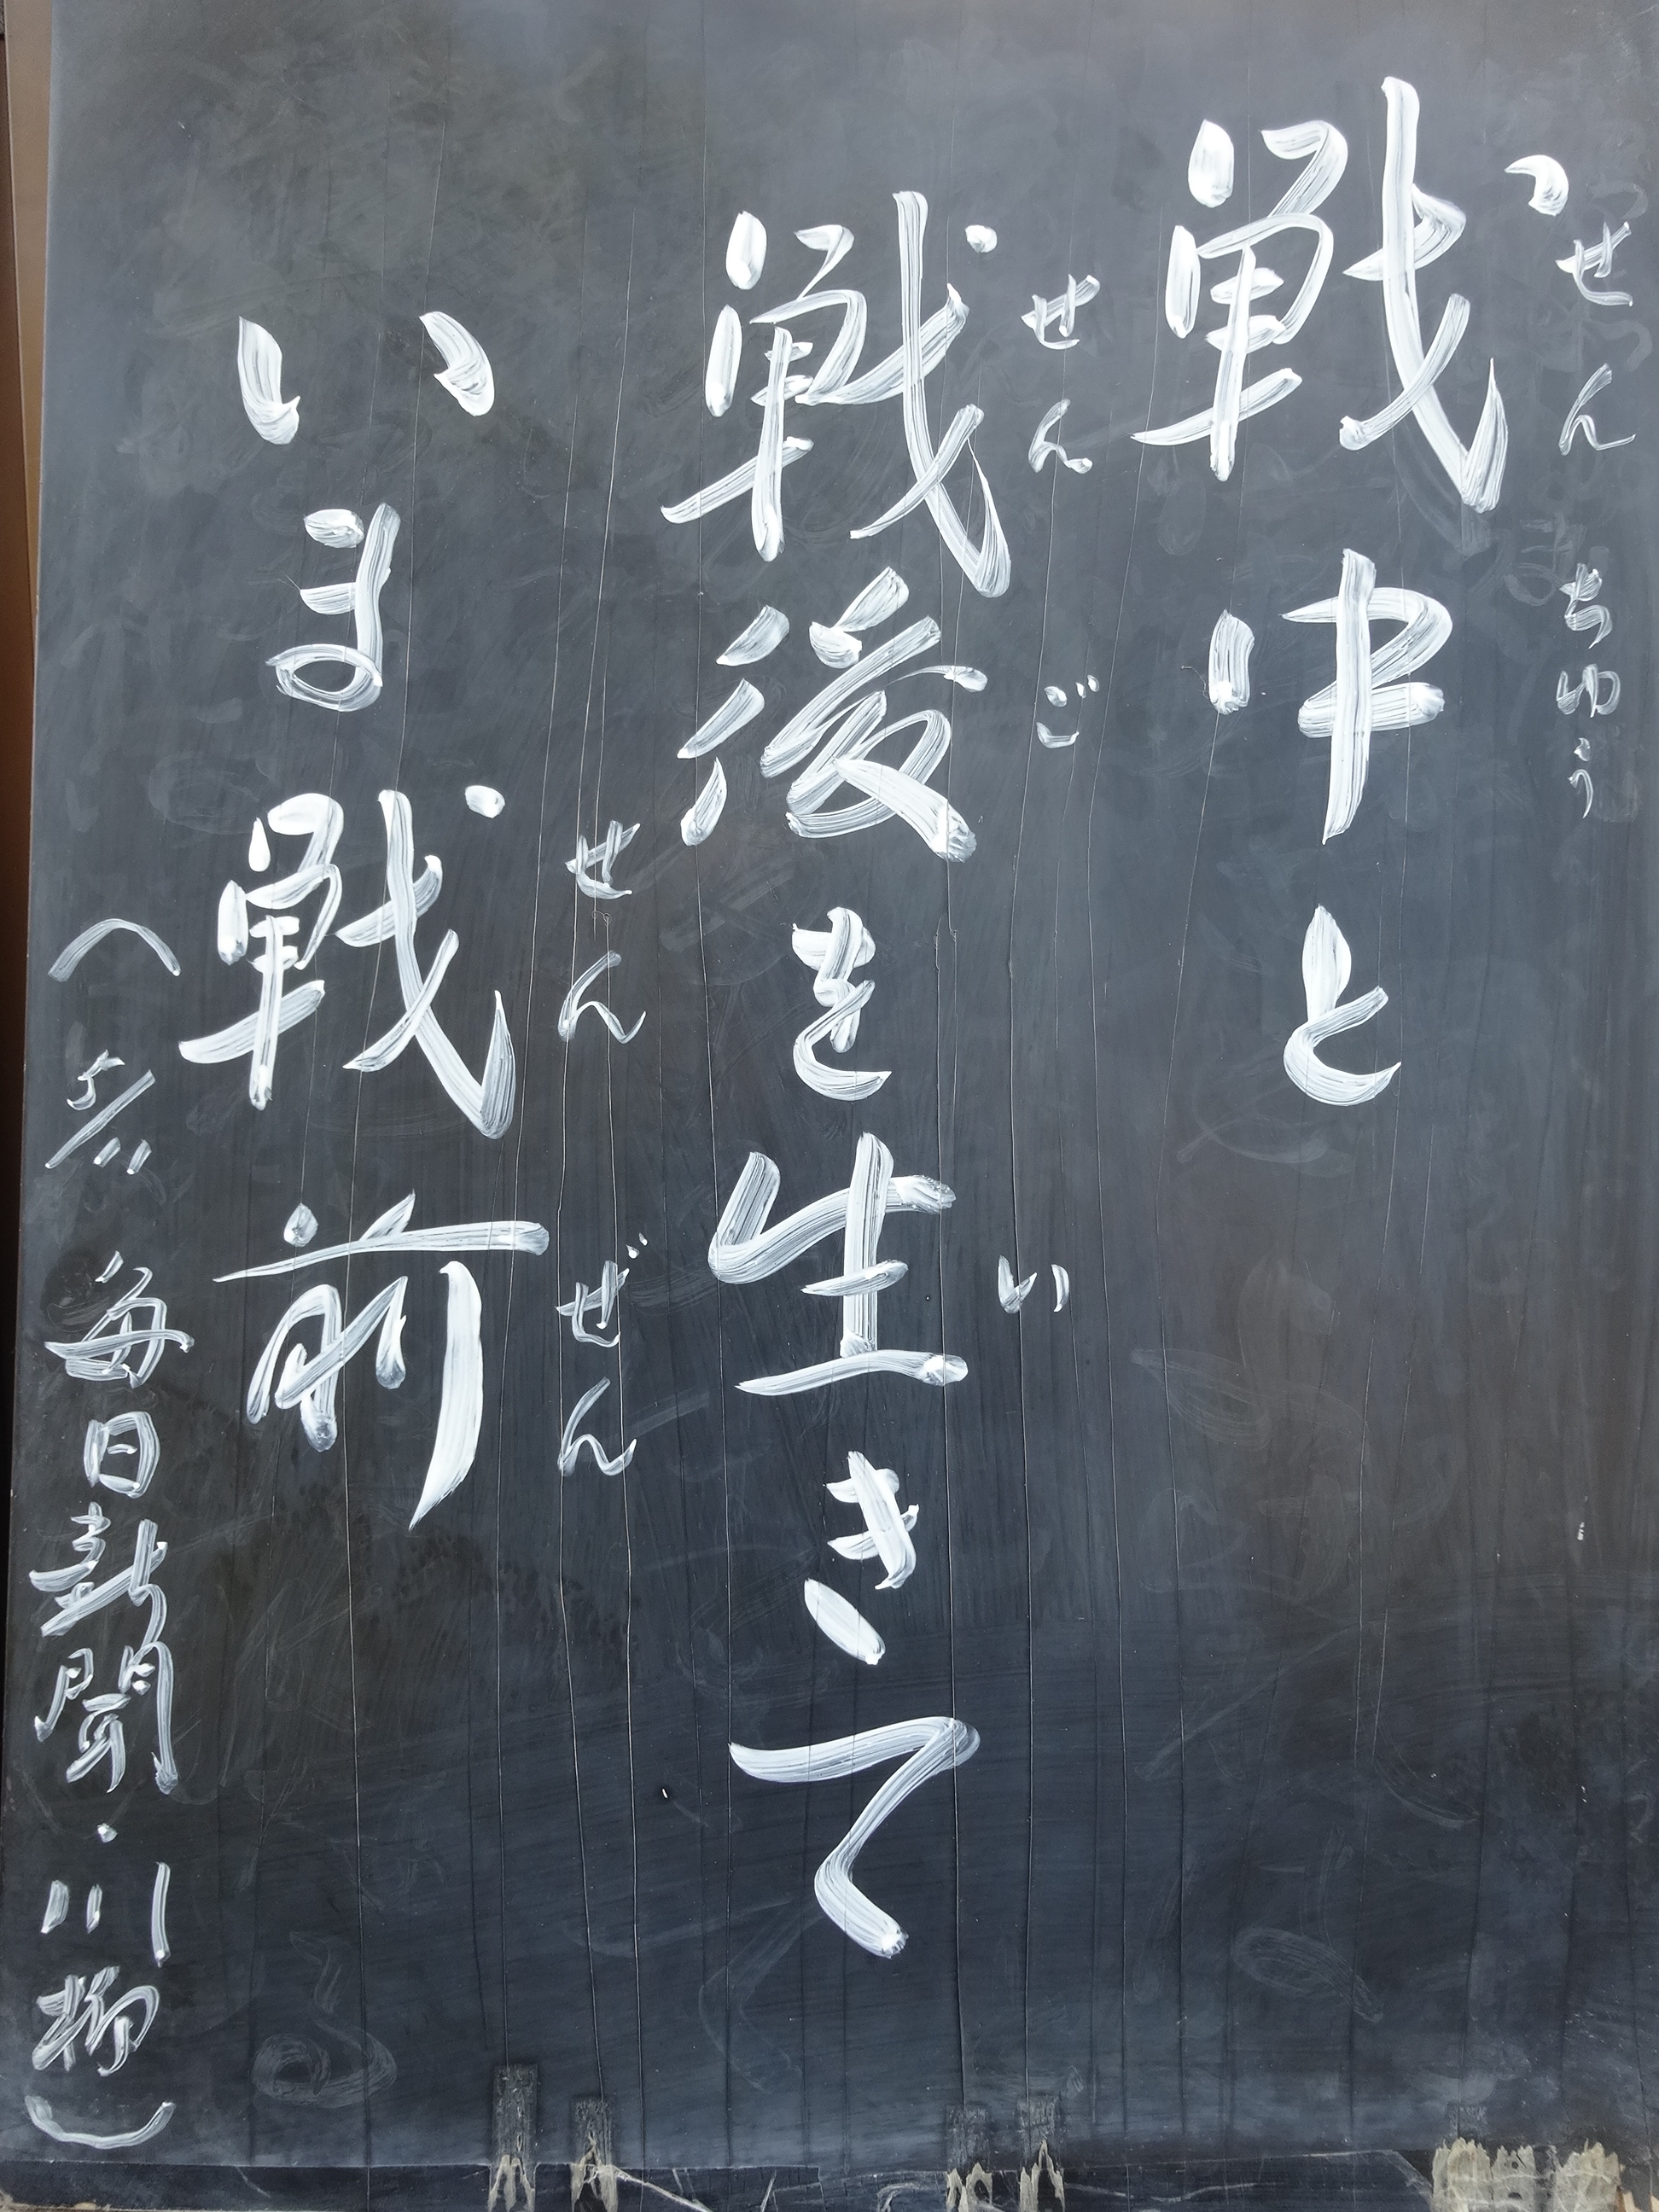 戦中と
せんちゅう
戦後を生きて
せんご い
いま戦前
せんぜん
(5/11 毎日新聞・川柳)